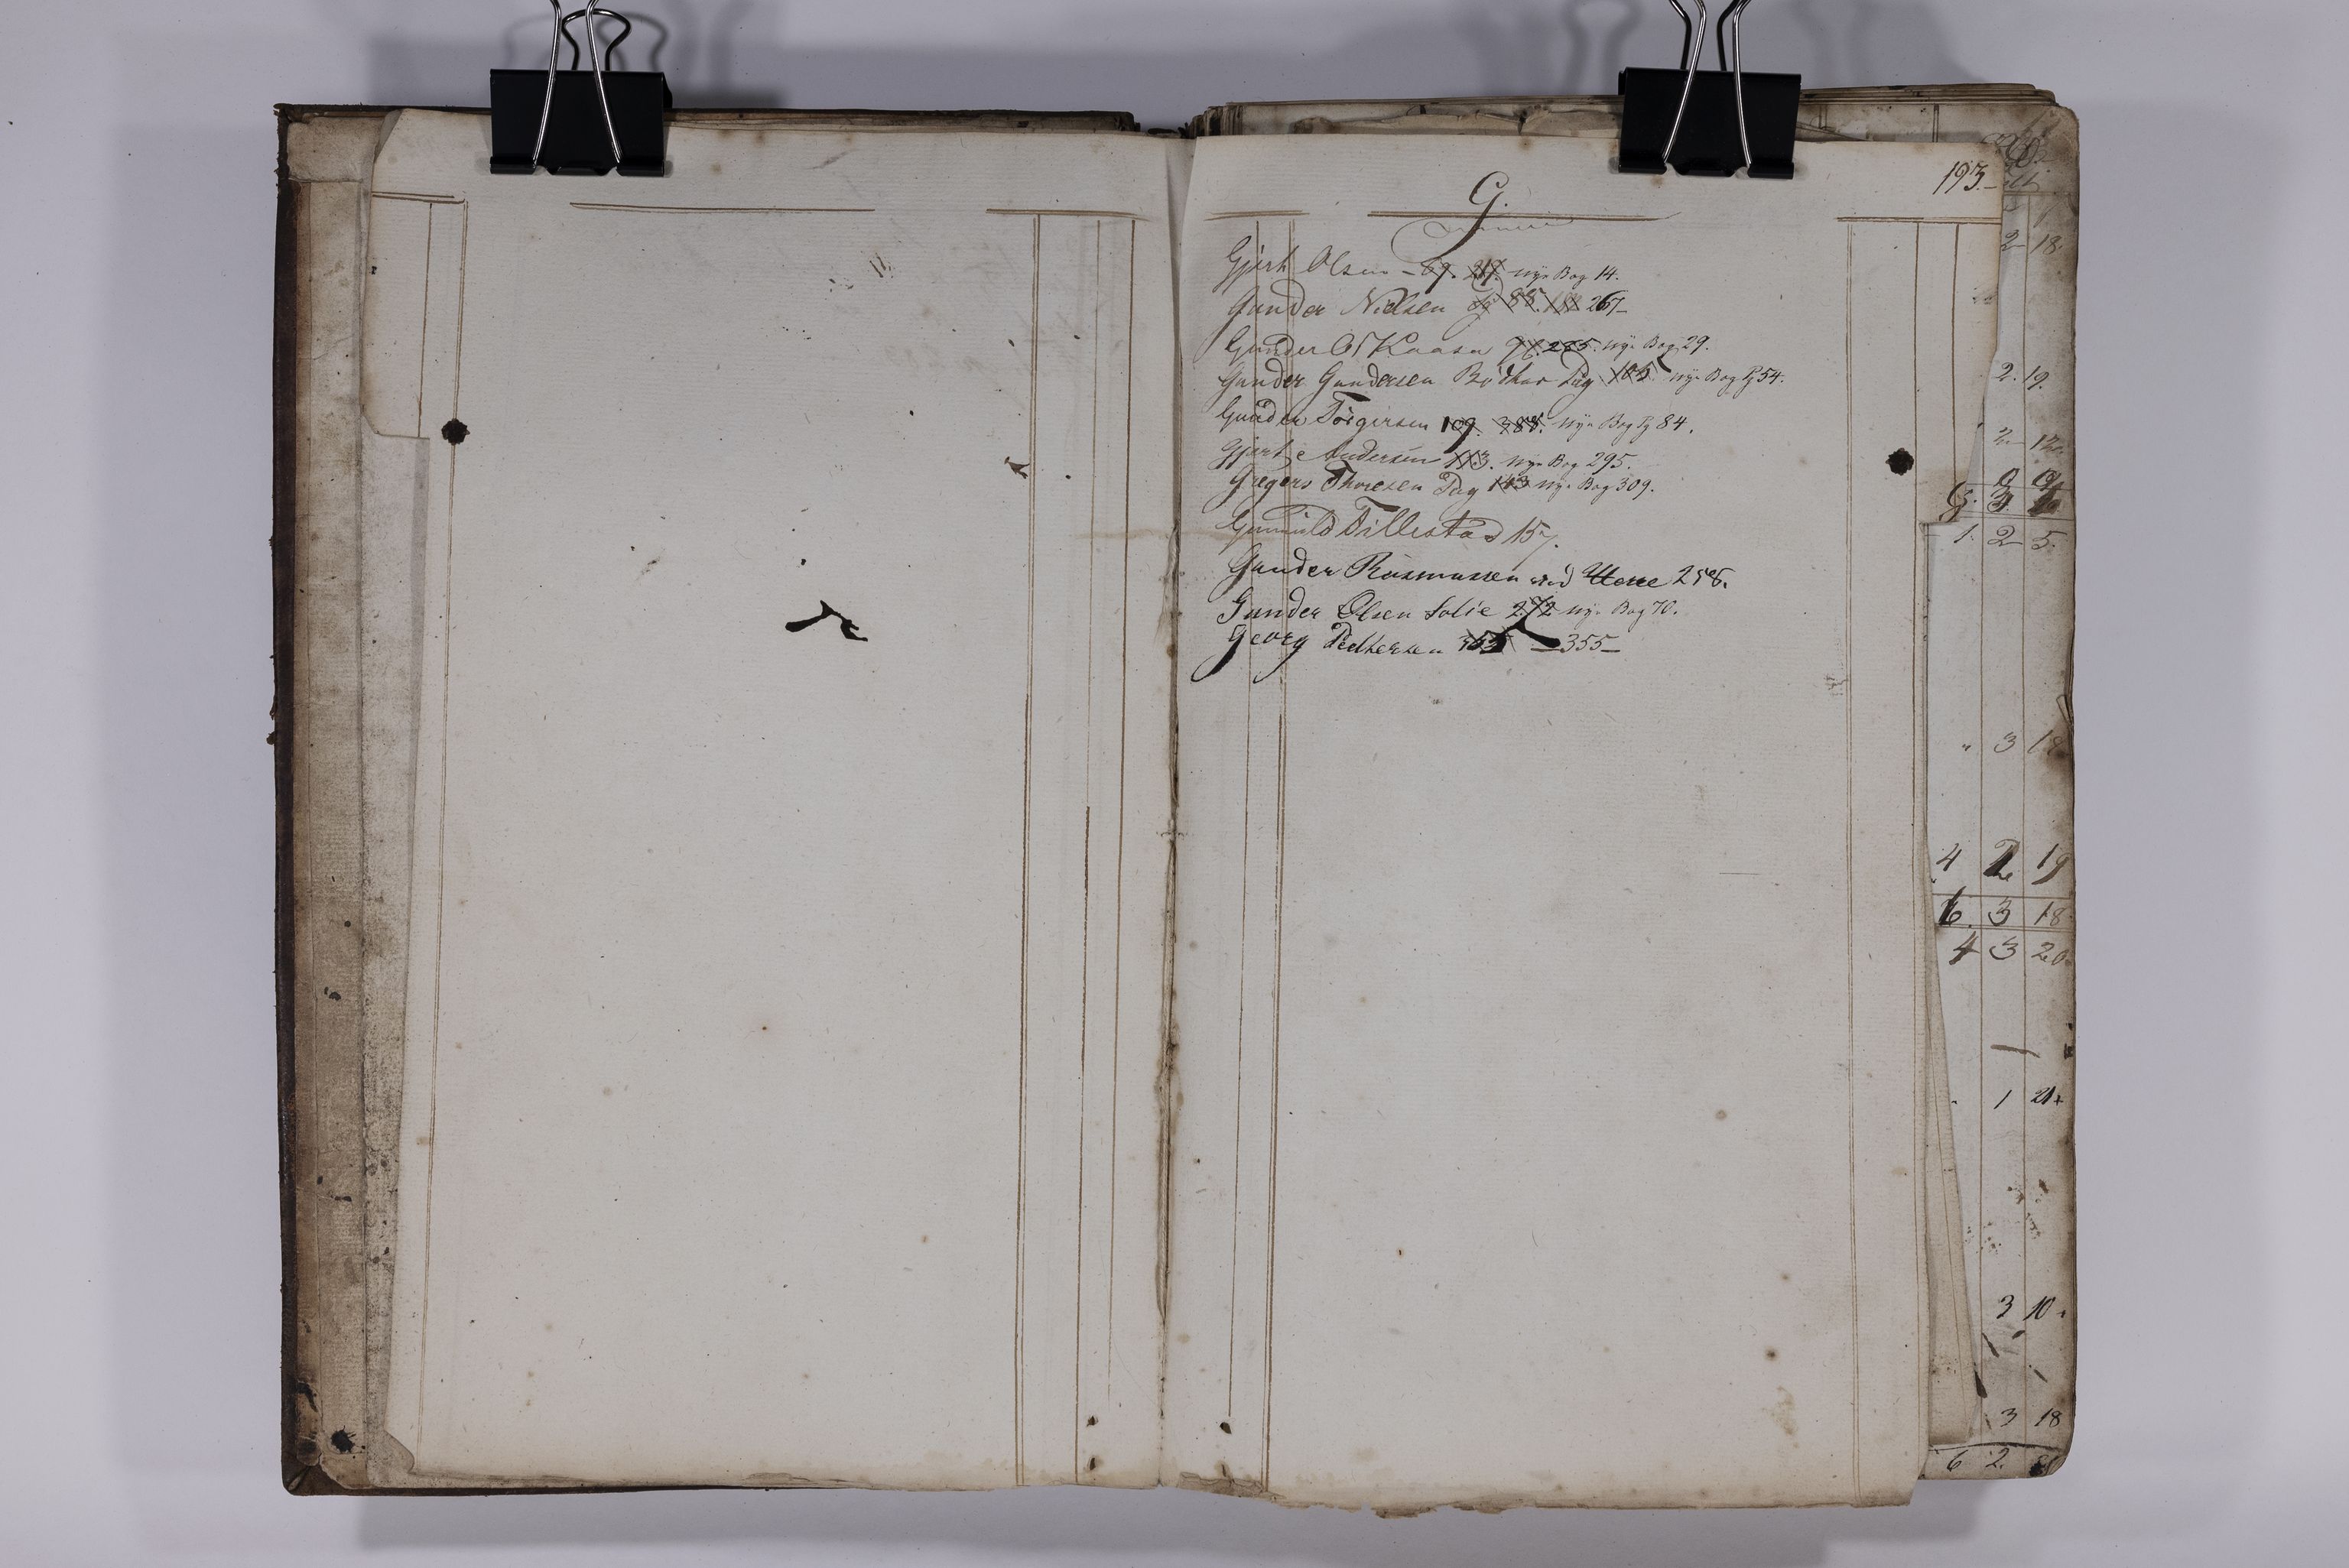 193.
G.
Gjert Olsen - 69. 217. nye Bog 14.
Gunder Nielsen Pg 88. 188 267
Gunder Ol Kaasa 96. 285. nye Bog 29.
Gunder Gundersen Bödker Pag 105 nye Bog Pg 54.
Gunder Torgersen 109. 388. nye Bog Pg 84.
Gjert Andersen 113. nye Bog 295.
Gregers Thoresen Pag 143 nye Bog 309.
Gunnuld Tillestad 157.
Gunder Rasmussen ved
Gunder Olsen Solie 272 nye Bog 70.
Georg Pedhersen 355 355
2 18.
2. 19.
2 12
1. 2 5.
" 3 18
4 2 19
6. 3 18
4 3 20
1 21
3 10
3 18
6 2.